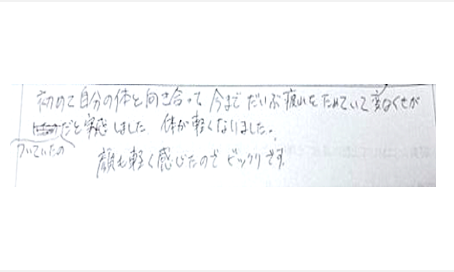 初めて自分の体と向き合って 今まで だいぶ疲れをためていて 変なくせが
ついていたのだと実感しました 体が軽くなりました。
顔も軽く感じたので ビックリです